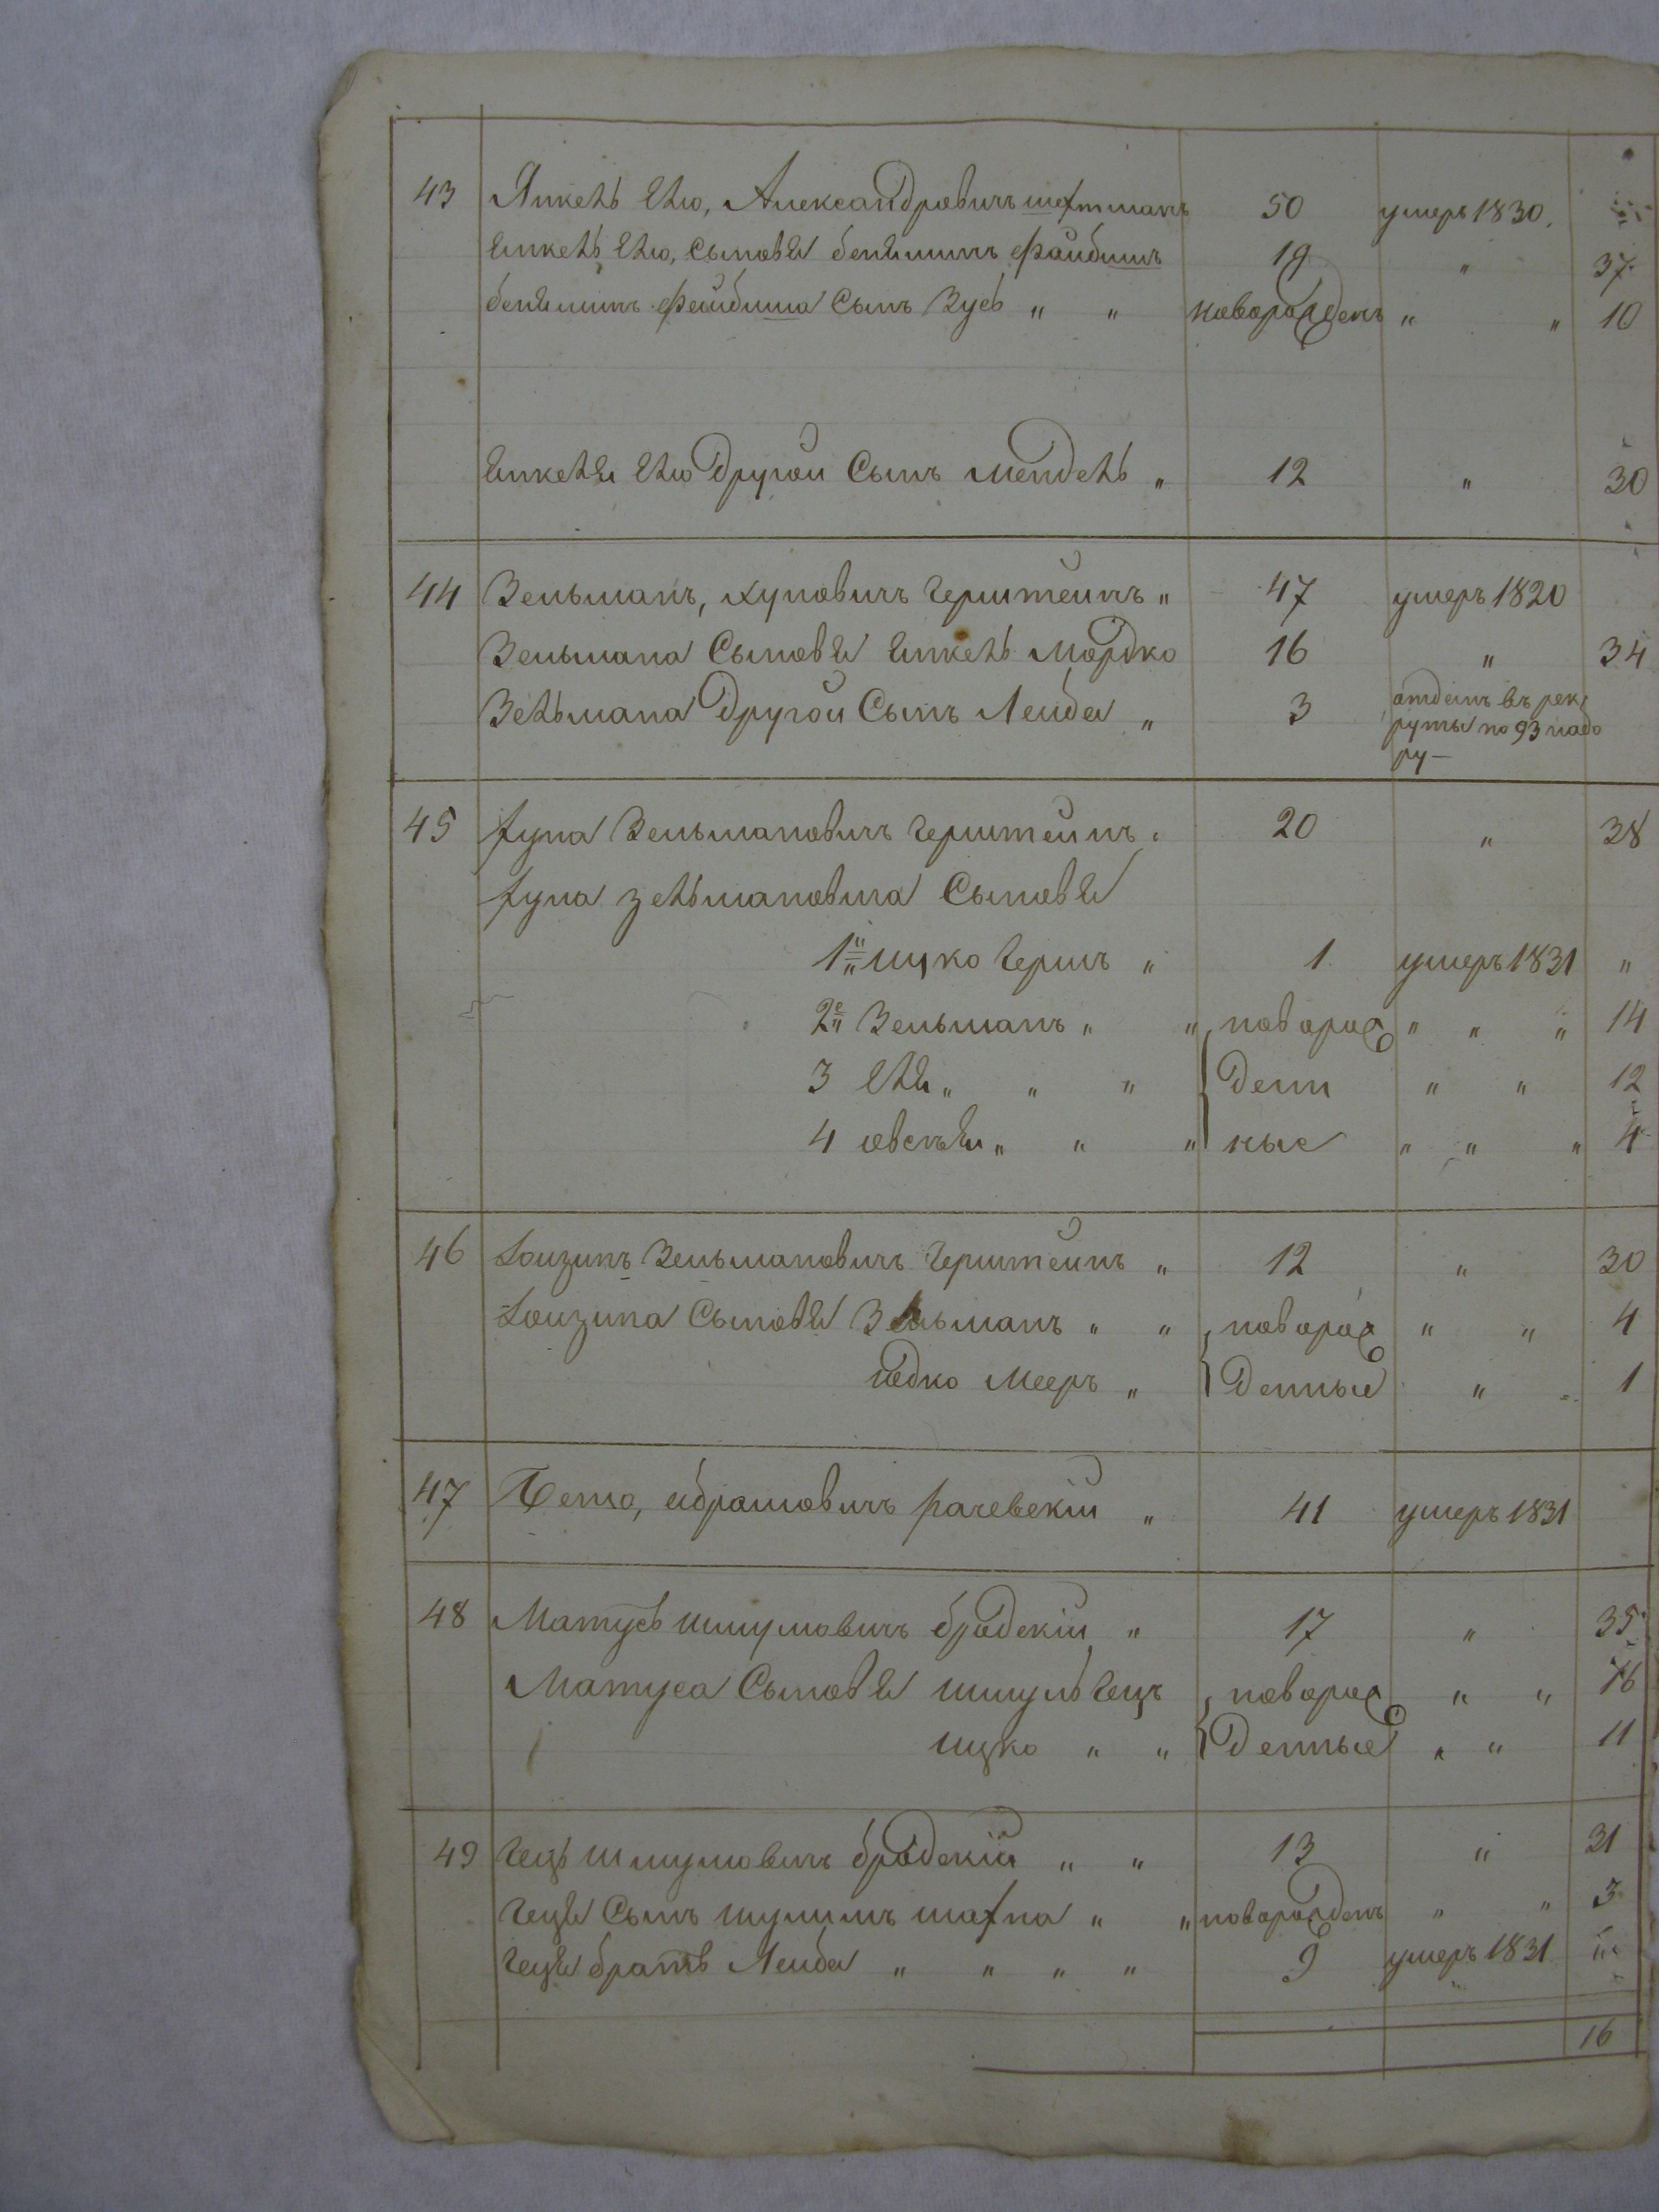 43 Янкель Элю, Александровичъ шехтманъ 50 умеръ 1830.
Янкель Элю, Сыновья бениминъ Файбишъ 19 " 37
бенимина Файбиша Сынъ Зусь " " новорожденъ " " 10
Янкеля Элю Другой Сынъ Мендель " 12 " 30
44 Зельманъ, хуновичъ герштейнъ " 47 умеръ 1820
Зельмана Сыновья Янкель Мордко 16 " 34
Зельмана Другой Сынъ Лейба " 3 отданъ въ рек
руты по 93 набо
ру —
45 хуна Зельмановичъ герштейнъ " 20 " 38
хуна зельмановича Сыновья
1й Ицко гершъ " 1 умеръ 1831 "
2й Зельманъ " " новорож " " " 14
3 Эля " " " денн " " 12
4 " " " ные " " " 4
46 Лойзинъ Зельмановичъ герштейнъ " 12 " 30
Лойзина Сыновья Зельманъ " " новорож " " 4
Мееръ " денные " 1
47 абрамовичъ рачевскій " 41 умеръ 1831
48 Матусь шмуловичъ бродскій " 17 " 35
Матуса Сыновья шмуль гецъ новорож " " 16
Ицко " " денные " " 11
49 гець шмуловичъ бродскій " " 13 " 31
геця Сынъ шулимъ шахна " " новорожденъ " " 3
геця братъ Лейба " " " " 9 умеръ 1831 "
16